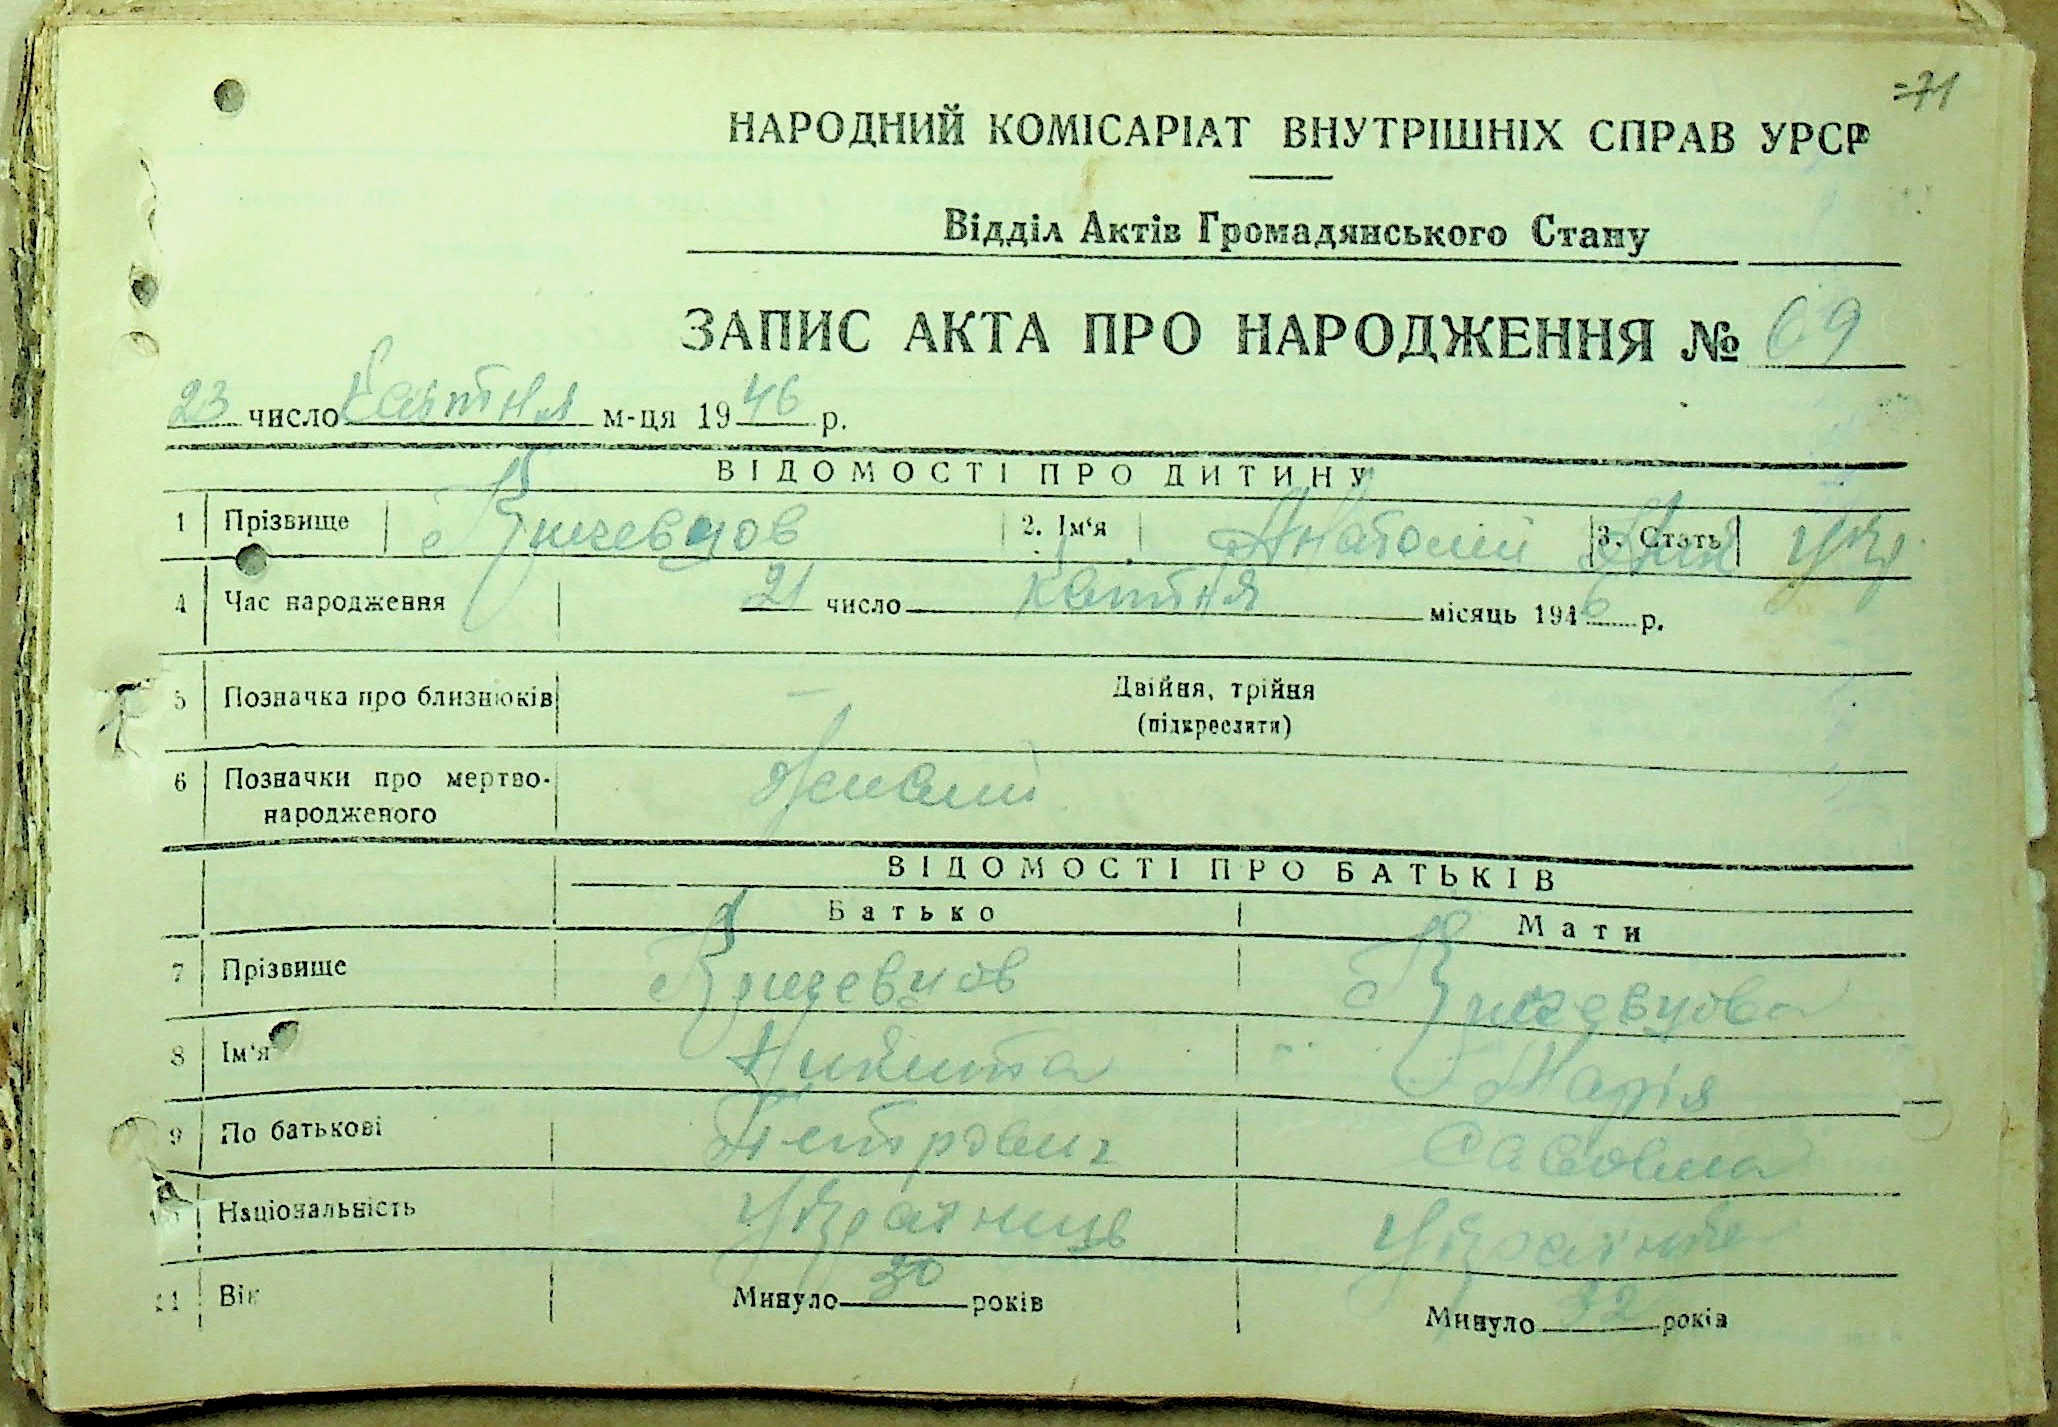 71
НАРОДНИЙ КОМІСАРІАТ ВНУТРІШНІХ СПРАВ УРСР
Відділ Актів Громадянського Стану
ЗАПИС АКТА ПРО НАРОДЖЕННЯ № 69
23 число квітня м-ця 1946 р.
ВІДОМОСТІ ПРО ДИТИНУ
1 Прізвище 2. Ім'я Анатолій 3. Стать
4 Час народження 21 число квітня місяць 1946 р.
5 Позначка про близнюків — Двійня, трійня
(підкреслити)
6 Позначки про мертво-
народженого
ВІДОМОСТІ ПРО БАТЬКІВ
Батько Мати
7 Прізвище
8 Ім'я Микита Марія
9 По батькові Петрович Савовна
Національність Українець Українка
11 Вік Минуло 30 років Минуло 32 років